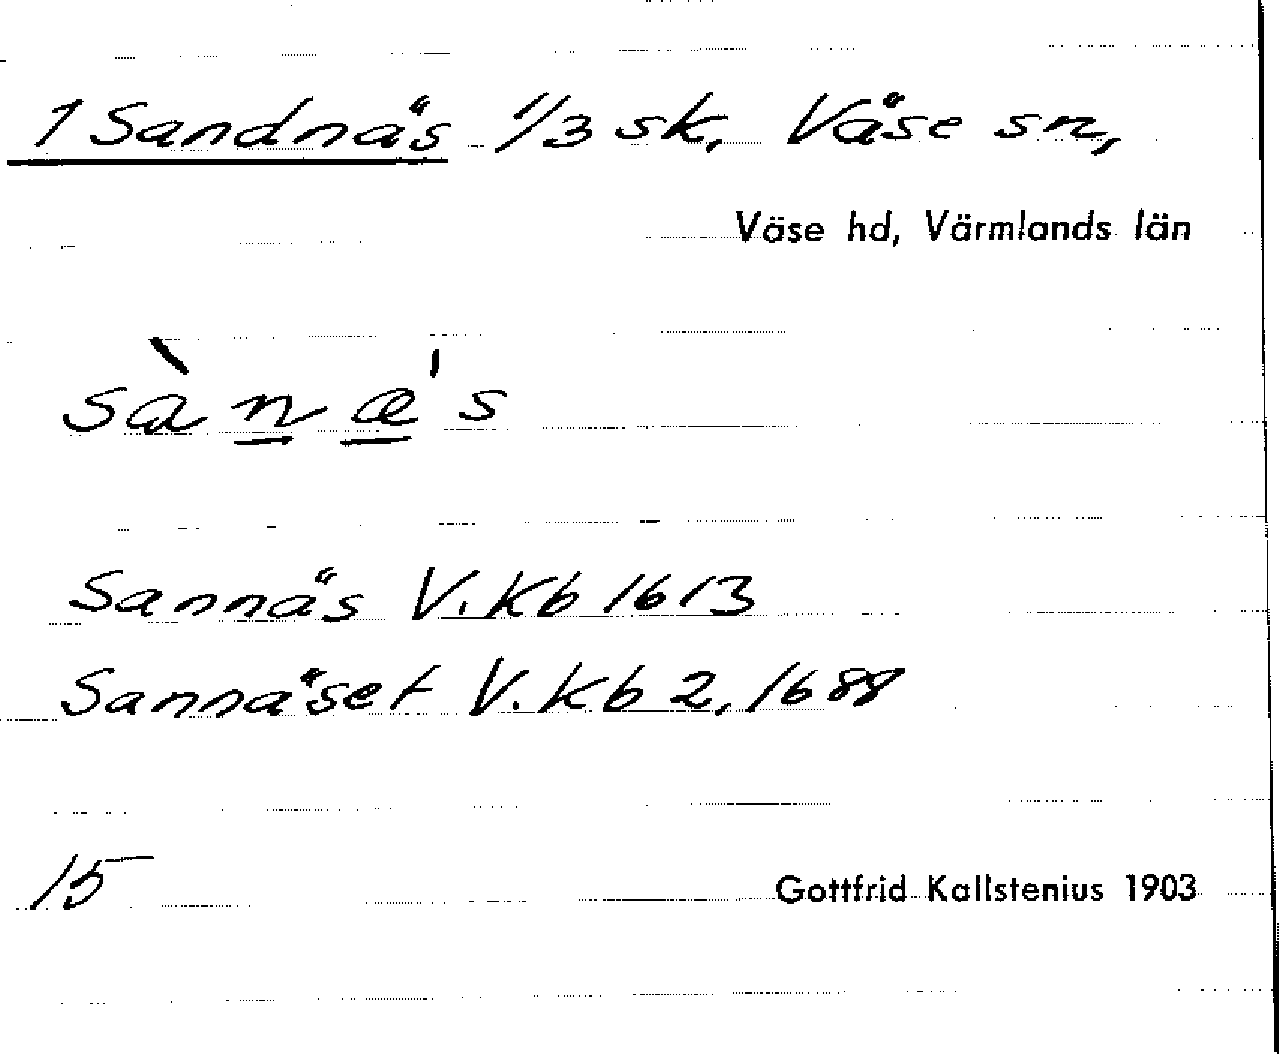 1 Sandnäs 1/3 sk, Väse sn,
Väse hd, Värmlands län
sànæ's
Sannäs V. Kb 1613
Sannäset V. Kb 2, 1688
15
Gottfrid Kallstenius 1903